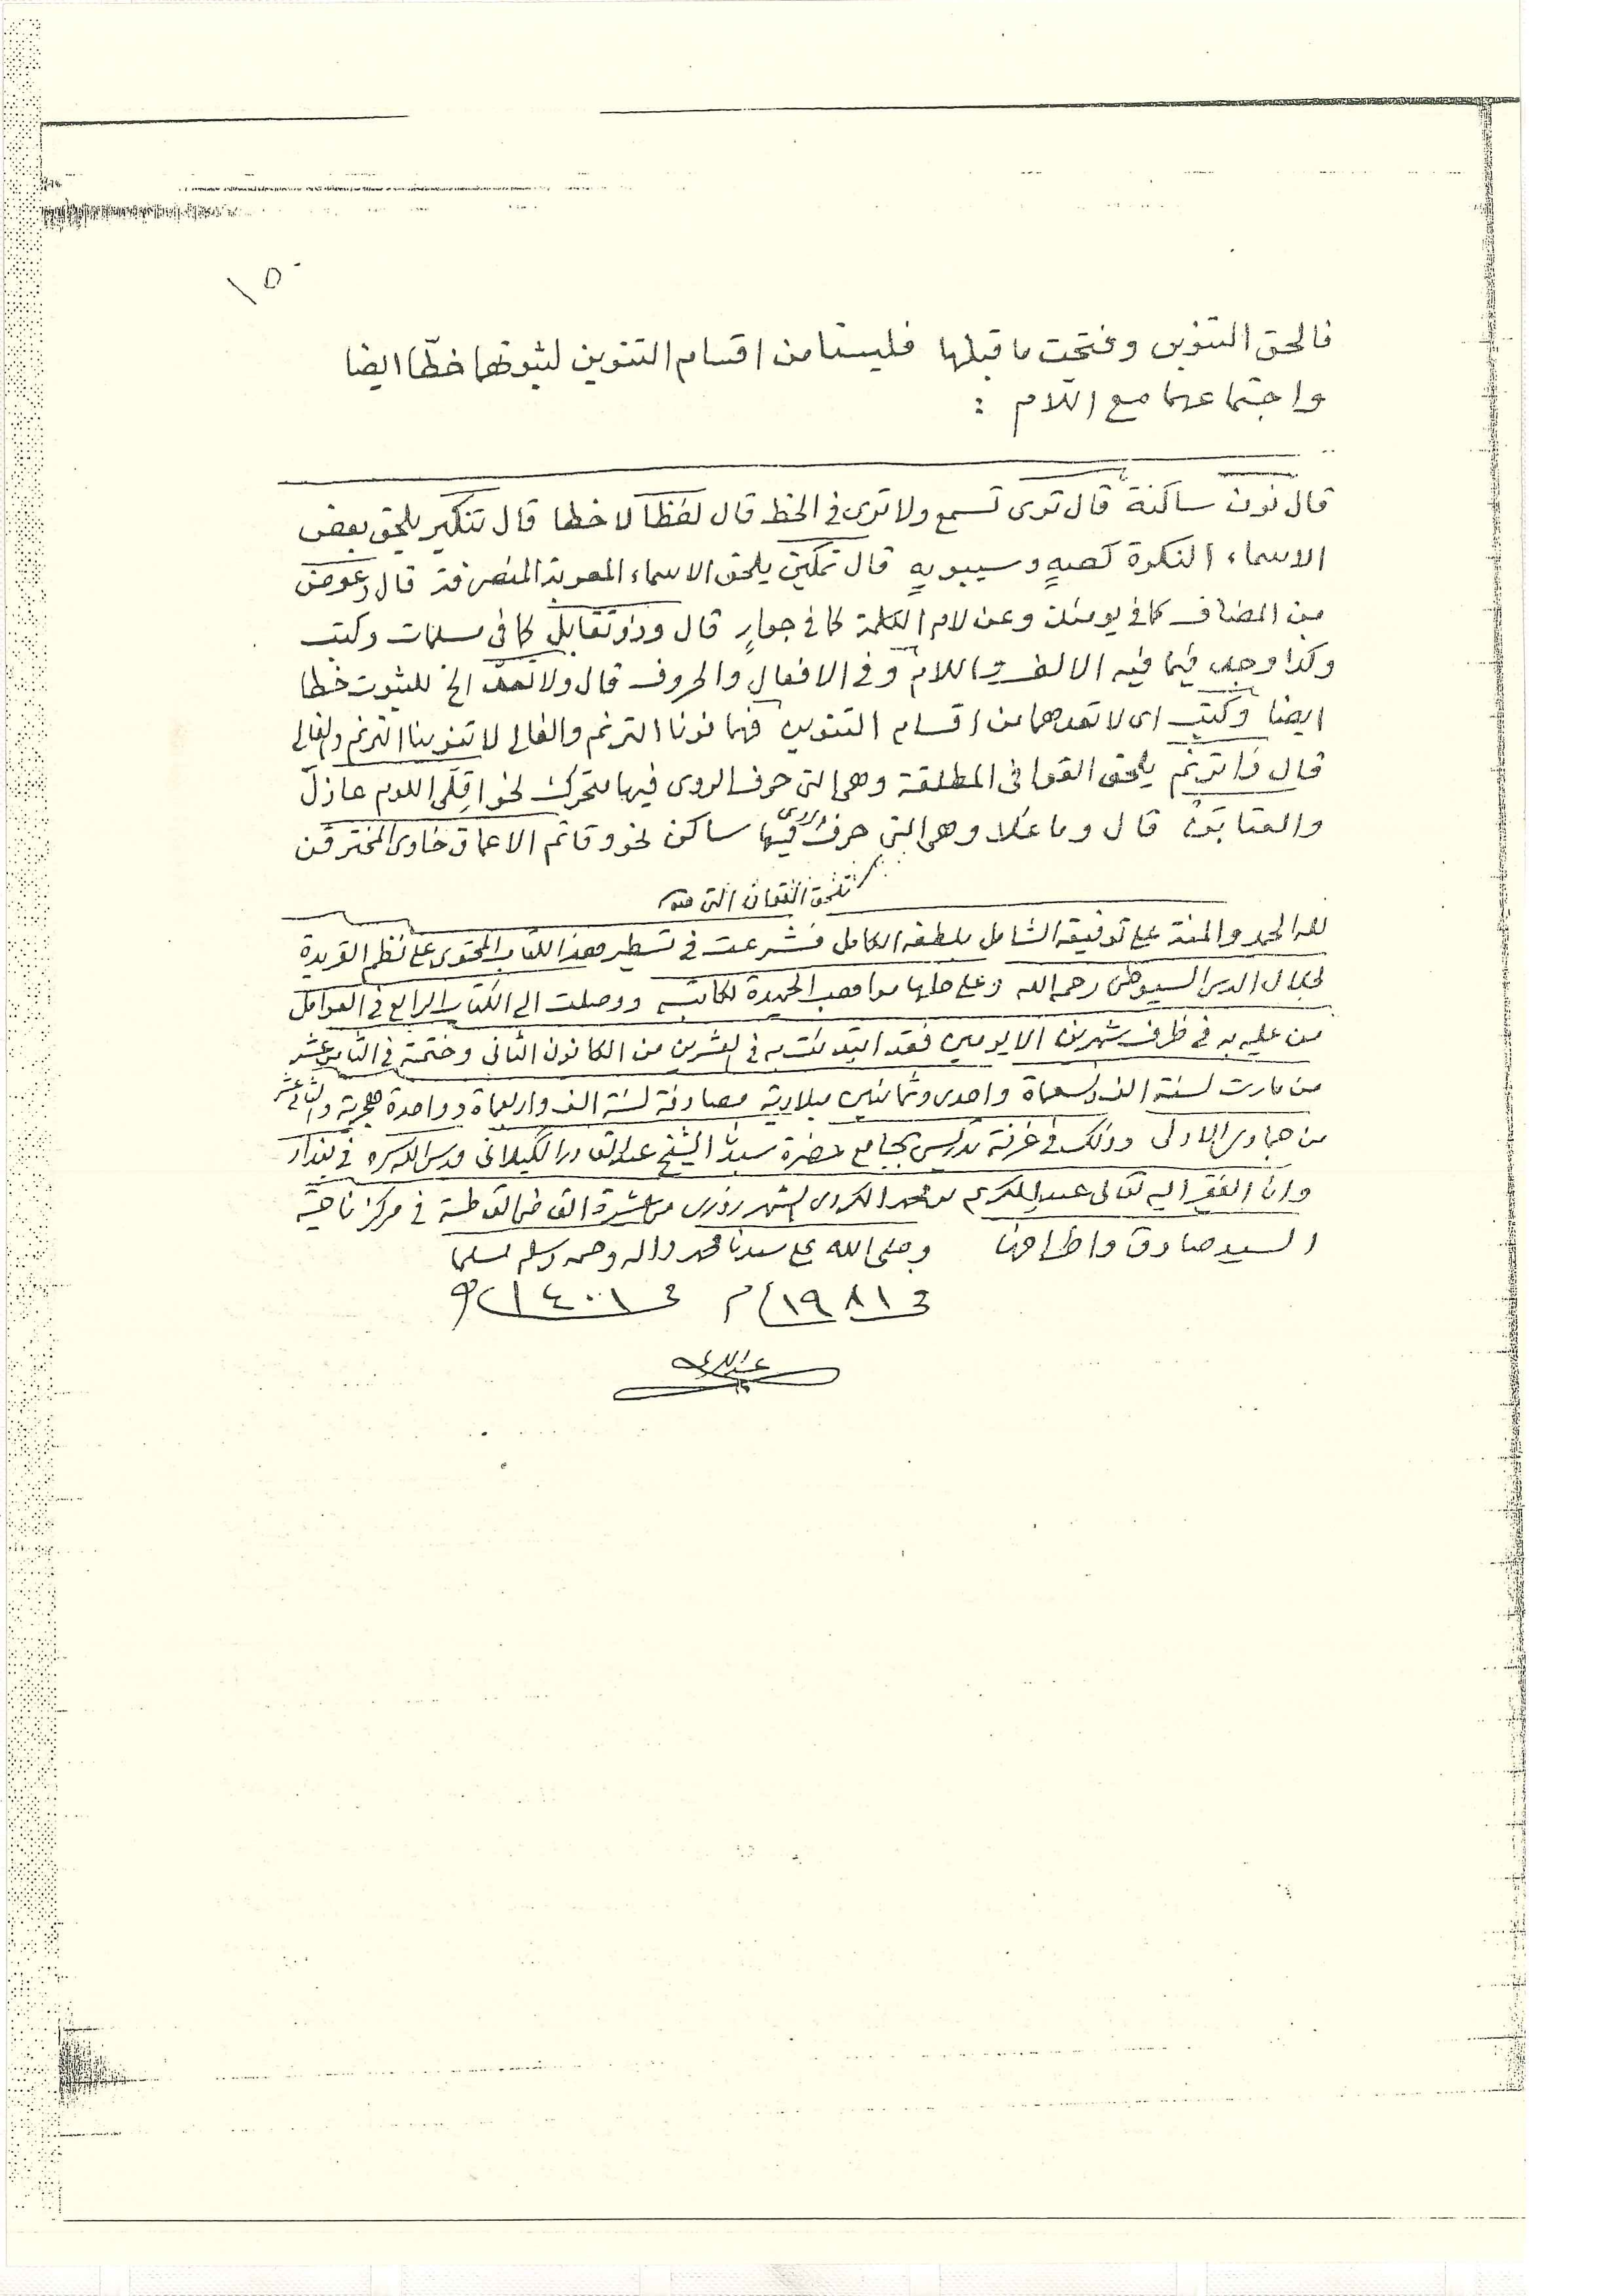 ١٥٠
فالحق التنوين وفتحت ما قبلها فليستا من اقسام التنوين لثبوتهما خطّا ايضا
واجتماعهما مع اللام :
قال نون ساكنة قال تروى تسمع ولا ترى فى الخط قال لفظا لا خطا قال تنكير يلحق بعض
الاسماء النكرة كصهٍ وسيبويهٍ قال تمكين يلحق الاسماء المعربة المنصرفة قال وعوض
من المضاف كما فى يومئذ وعن لام الكلمة كما فى جوارٍ قال وذو تقابل كما فى مسلمات وكتب
وكذا وجد فيما فيه الالف واللام وفى الافعال والحروف قال ولا تعد الخ للثبوت خطا
ايضا وكتب اى لا تعدهما من اقسام التنوين فهما نونا الترنم والغالى لا تنوينا الترنم والغالى
قال ذا ترنم يلحق القوافى المطلقة وهى التى حرف الروى فيها متحرك نحو اقلى اللوم عاذل
والعتابن قال وما علا وهى التى حرف الروى فيها ساكن نحو وقاتم الاعماق خاوى المخترقن
لله الحمد والمنة على توفيقه الشامل بلطفه الكامل فشرعت فى تسطير هذا الكتاب المحتوى على نظم الفريدة
لجلال الدين السيوطى رحمه الله وعلى حلها مواهب الحميدة لكاتبه ووصلت الى الكتاب الرابع فى العوامل
من عليه به فى ظرف شهرين الا يومين فقد ابتدئت به فى العشرين من الكانون الثانى وختمته فى الثامن عشر
من مارت لسنة الف وتسعماة واحدى وثمانين ميلادية مصادفة لسنة الف واربعماة وواحدة هجرية والثانى عشر
من جمادى الاولى وذلك فى غرفة تدريسى بجامع حضرة سيدنا الشيخ عبد القادر الكيلانى قدس الله سره فى بغداد
وانا الفقير اليه تعالى عبد الكريم محمد الكردى الشهرزورى من عشيرة القاضى القاطنة فى مركز ناحية
السيد صادق واطرافها وصلى الله على سيدنا محمد واله وصحبه وسلم تسليما
فى ١٩٨١ م فى ١٤٠١ ه
عبد الكريم